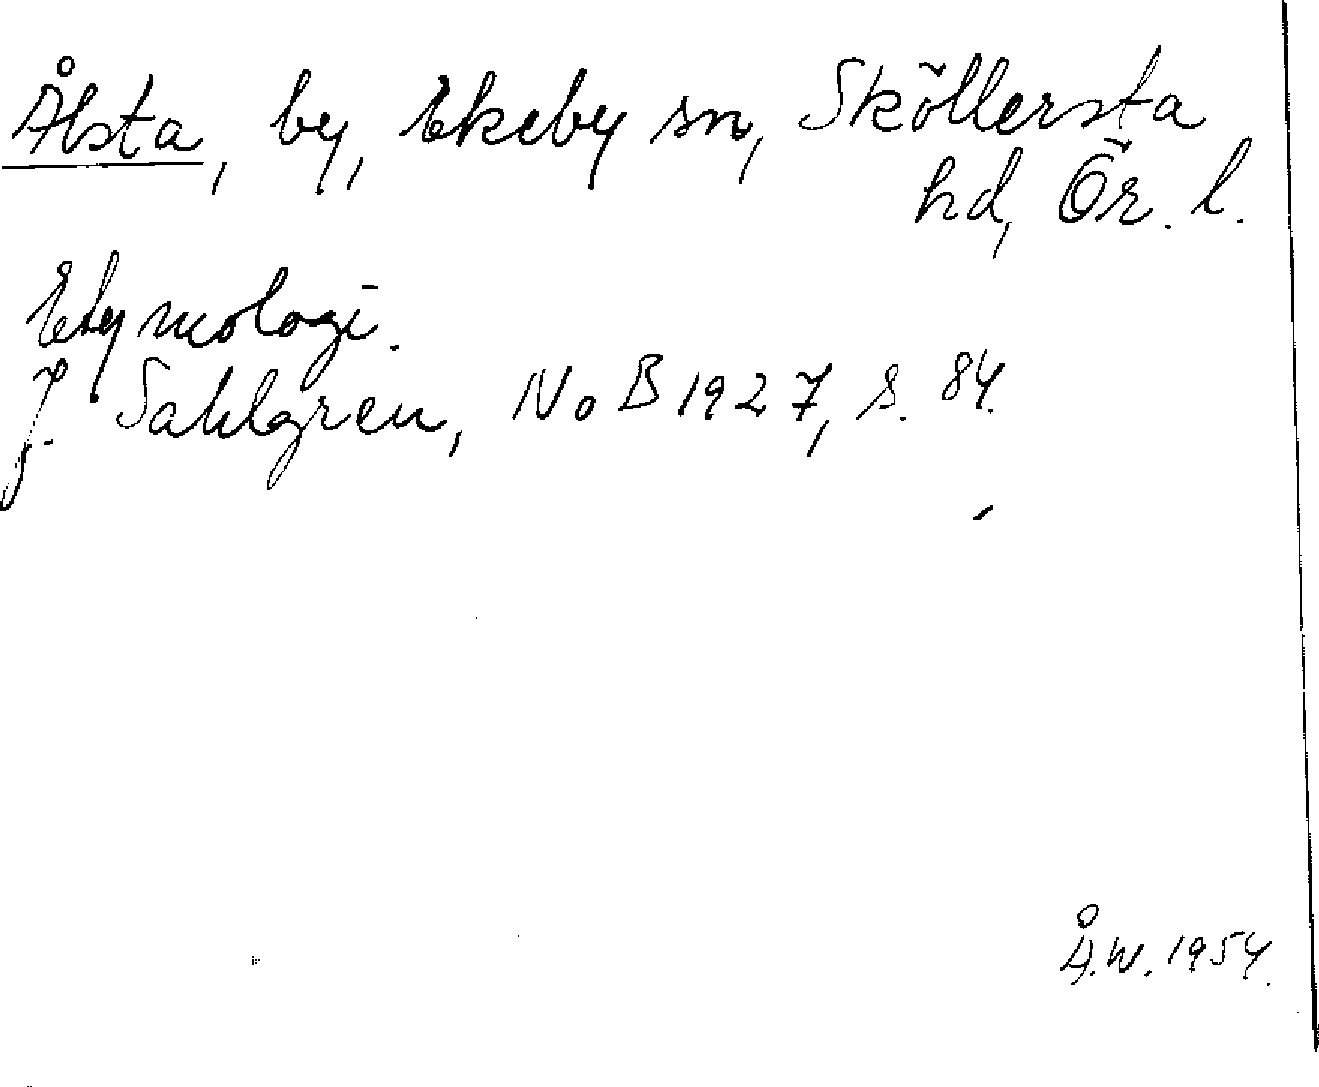 Ålsta, by, Ekeby sn, Sköllersta
hd, Ör. l.
Etymologi.
J. Sahlgren, NoB 1927, s. 84.
Å.W. 1954.